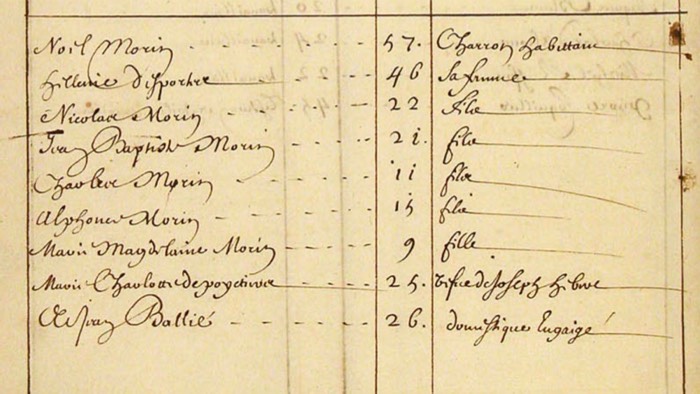 Noël Morin 57. Charron habittant
hillenne desportre 46 sa femme
Nicolas Morin 22 filz
Jean Baptiste Morin 21. filz
Charles Morin 11 filz
Alphonce Morin 15 filz
Marie Magdelaine Morin 9 fille
Marie Charlotte de poyctiers 25. vefve de Joseph hibou
Jean Ballié 26. domestique Engaigé